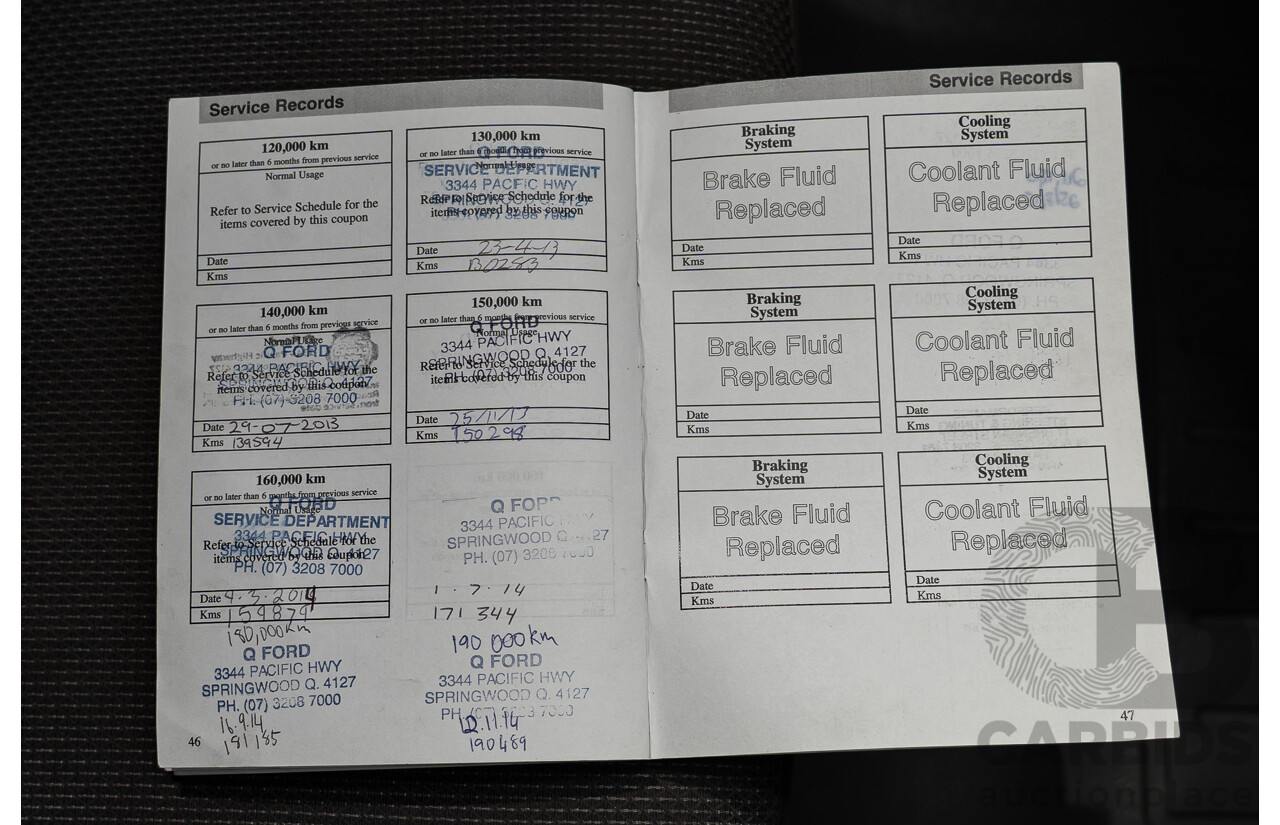 Service Records
120,000 km
or no later than 6 months from previous service
Normal Usage
Refer to Service Schedule for the
items covered by this coupon
Date
Kms
130,000 km
or no later than 6 months from previous service
Q FORD
Normal Usage
SERVICE DEPARTMENT
3344 PACIFIC HWY
Refer to Service Schedule for the
SPRINGWOOD Q. 4127
items covered by this coupon
PH. (07) 3208 7000
Date 23-4-13
Kms 130283
140,000 km
or no later than 6 months from previous service
Normal Usage
Q FORD
3344 PACIFIC HWY
Refer to Service Schedule for the
SPRINGWOOD Q. 4127
items covered by this coupon
PH. (07) 3208 7000
Date 29-07-2013
Kms 139594
150,000 km
or no later than 6 months from previous service
Q FORD
Normal Usage
3344 PACIFIC HWY
SPRINGWOOD Q. 4127
Refer to Service Schedule for the
PH. (07) 3208 7000
items covered by this coupon
Date 25/11/13
Kms 150298
160,000 km
or no later than 6 months from previous service
Q FORD
Normal Usage
SERVICE DEPARTMENT
3344 PACIFIC HWY
Refer to Service Schedule for the
SPRINGWOOD Q. 4127
items covered by this coupon
PH. (07) 3208 7000
Date 4.3.2014
Kms 159879
Q FOR
3344 PACIFIC
SPRINGWOOD 27
PH. (07) 3208 7000
1.7.14
171 344
180,000km
Q FORD
3344 PACIFIC HWY
SPRINGWOOD Q. 4127
PH. (07) 3208 7000
16.9.14
181185
190 000km
Q FORD
3344 PACIFIC HWY
SPRINGWOOD Q. 4127
12.11.14
190489
46
Service Records
Braking
System
Brake Fluid
Replaced
Date
Kms
Cooling
System
Coolant Fluid
Replaced
Date
Kms
Braking
System
Brake Fluid
Replaced
Date
Kms
Cooling
System
Coolant Fluid
Replaced
Date
Kms
Braking
System
Brake Fluid
Replaced
Date
Kms
Cooling
System
Coolant Fluid
Replaced
Date
Kms
47
CARBIDS
auctionplace